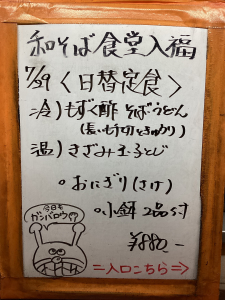 和そば食堂入福
7/29〈日替定食〉
冷)もずく酢 そば・うどん
(長いも千切ときゅうり)
温)きざみ玉子とじ
・おにぎり(さけ)
・小鉢 2品付
¥880-
今日も
ガンバロウ!
=入口こちら⇒